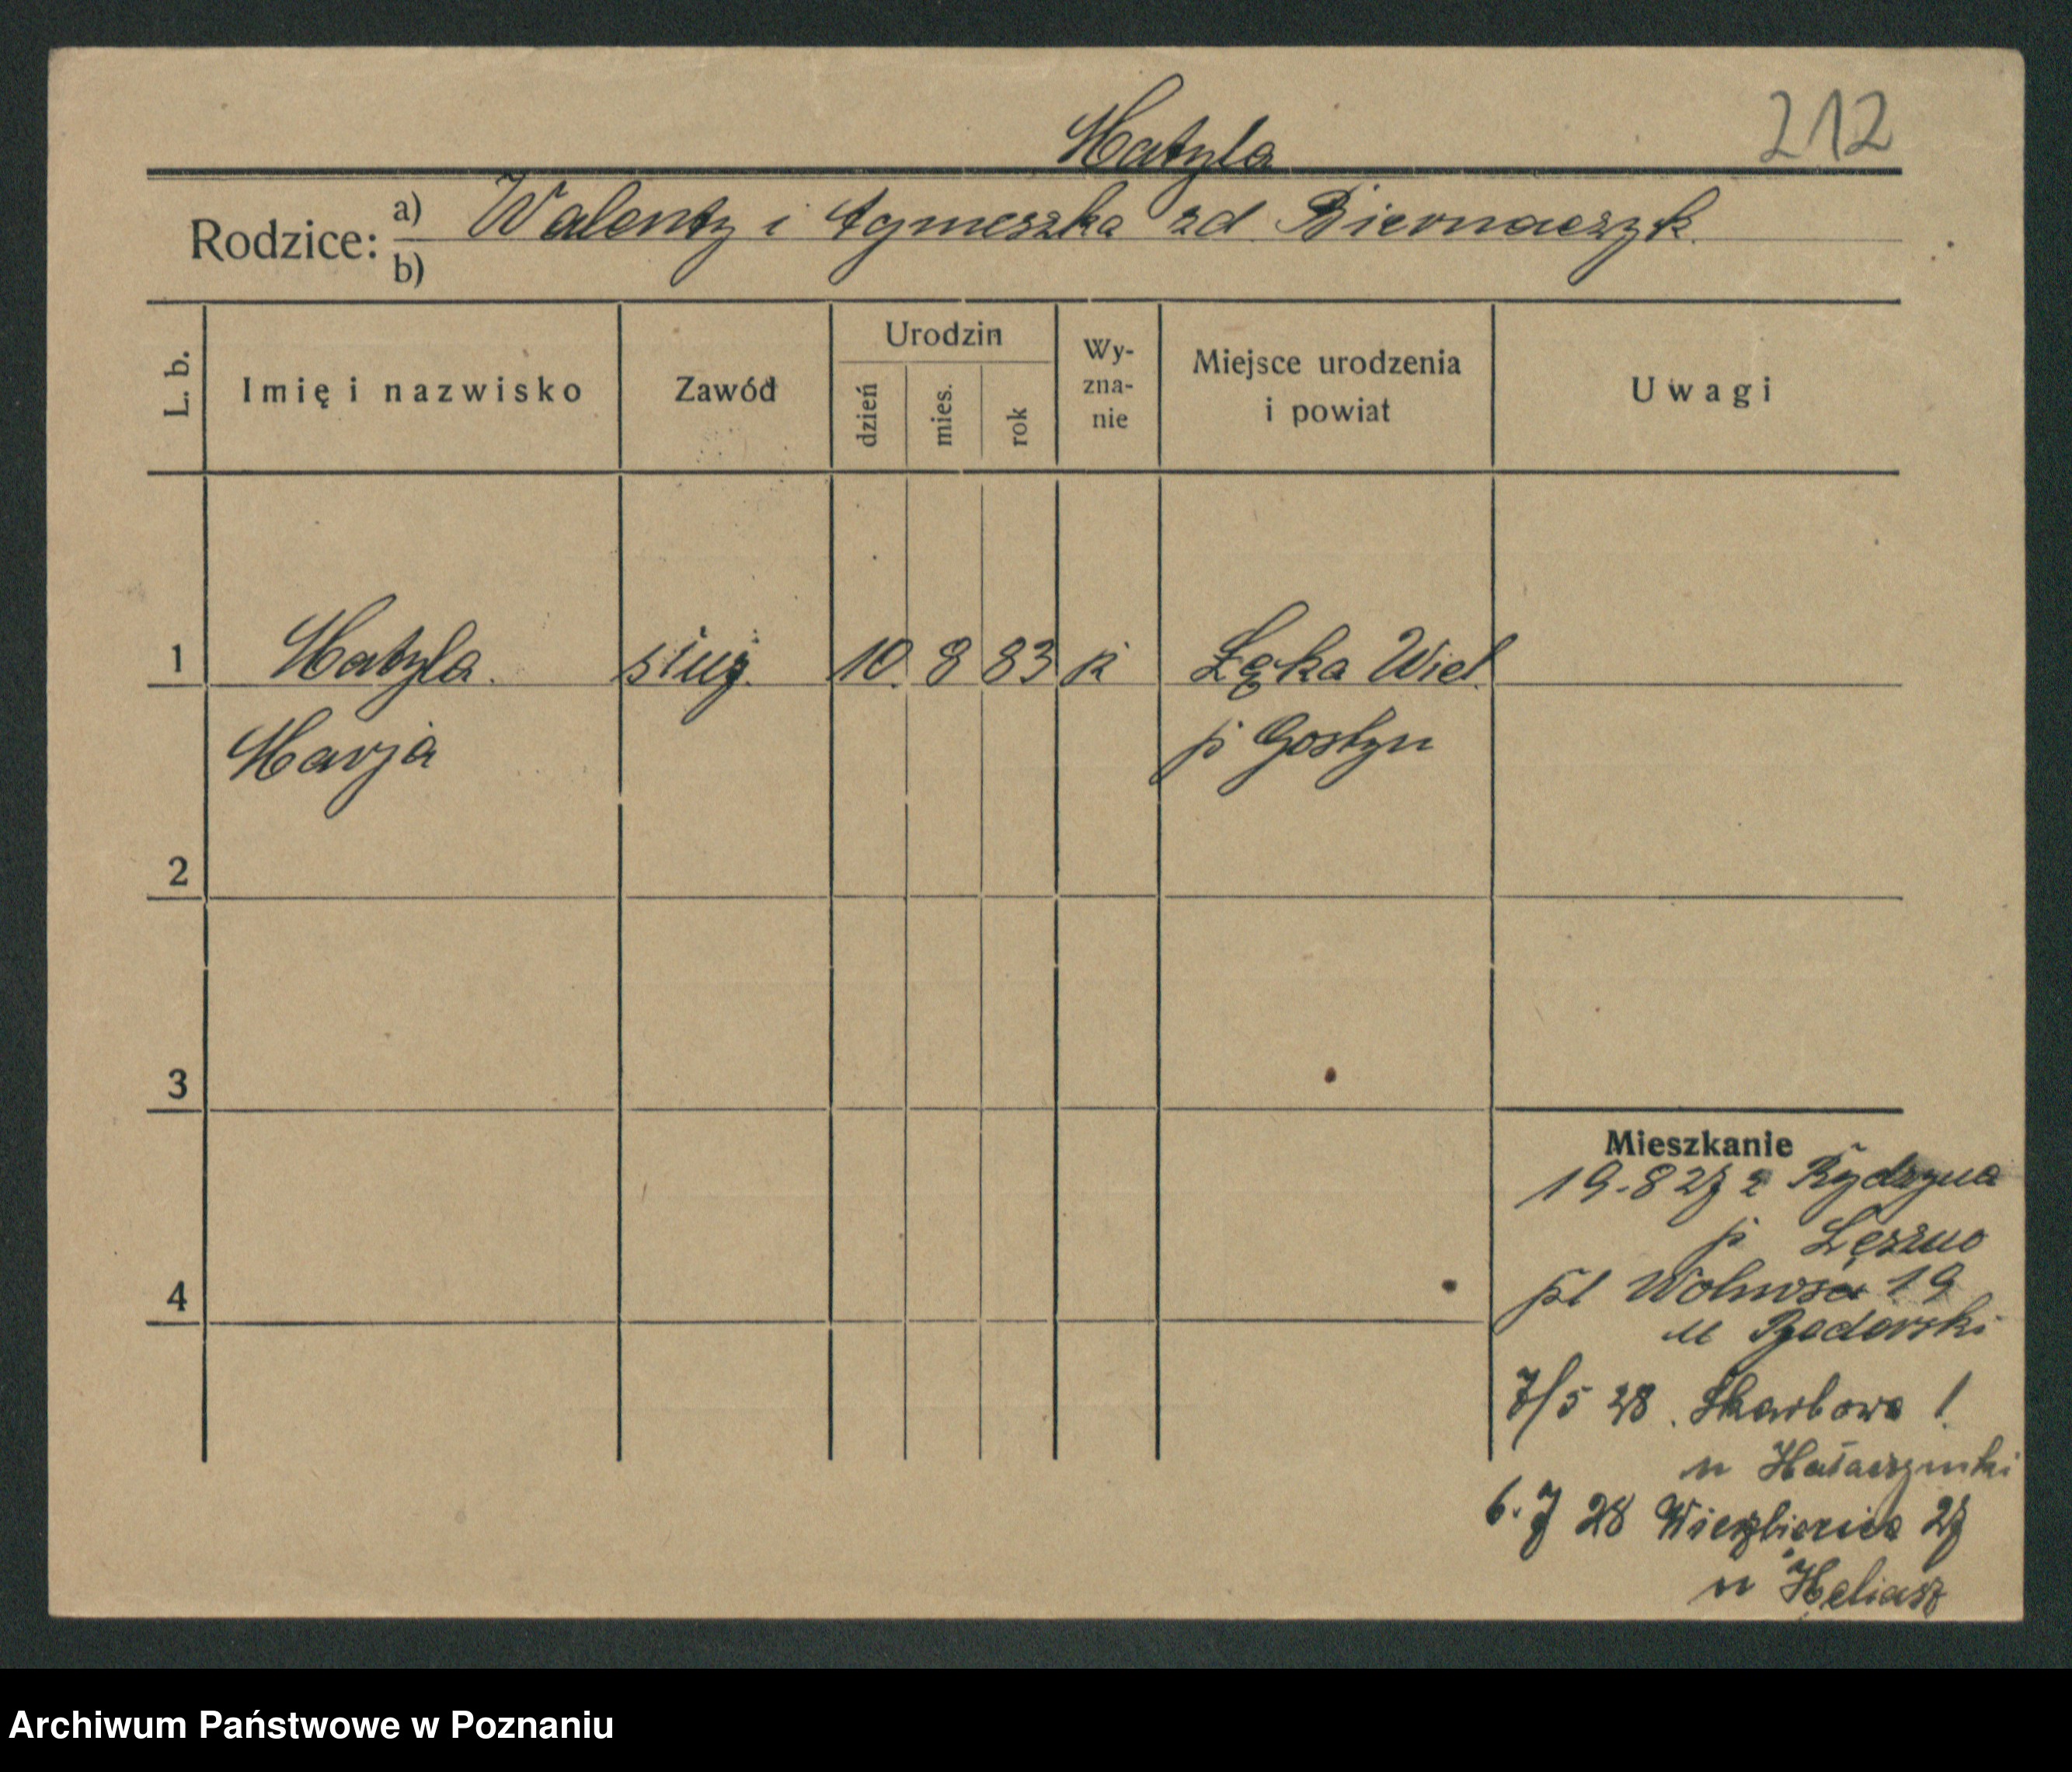 212
Matyla
Rodzice: a) Walenty i Agnieszka zd Biernaczyk.
b)
L. b. Imię i nazwisko Zawód Urodzin dzień mies. rok Wyznanie Miejsce urodzenia i powiat Uwagi
1 Matyla. służ. 10. 8 83 k Łęka Wiel.
Marja p Gostyn
2
3
Mieszkanie
19.8 27 z Rydzyna
p Leszno
4
pl Wolności 19
u
7/5 28. Skarbowa 1
u
6.7 28 Wierzbięcice 27
u Heliasz
Archiwum Państwowe w Poznaniu